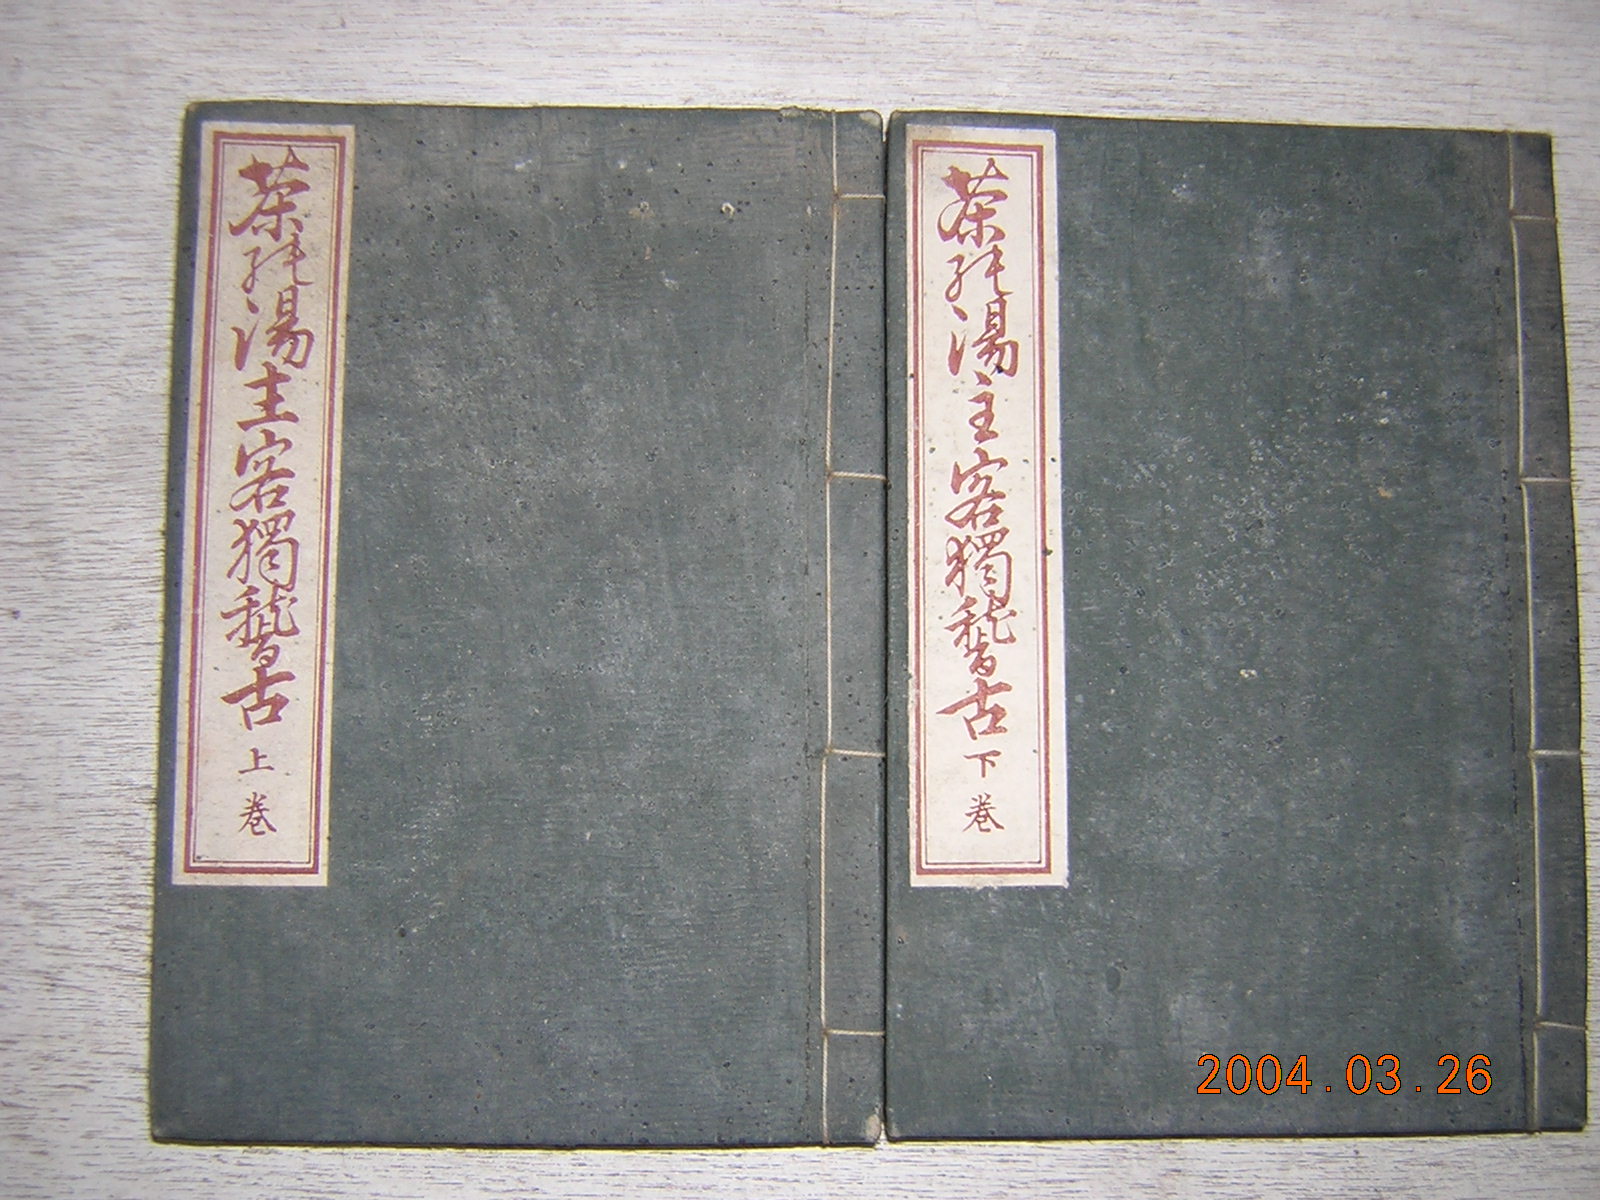 茶能湯主客獨稽古 上巻
茶能湯主客獨稽古 下巻
2004.03.26